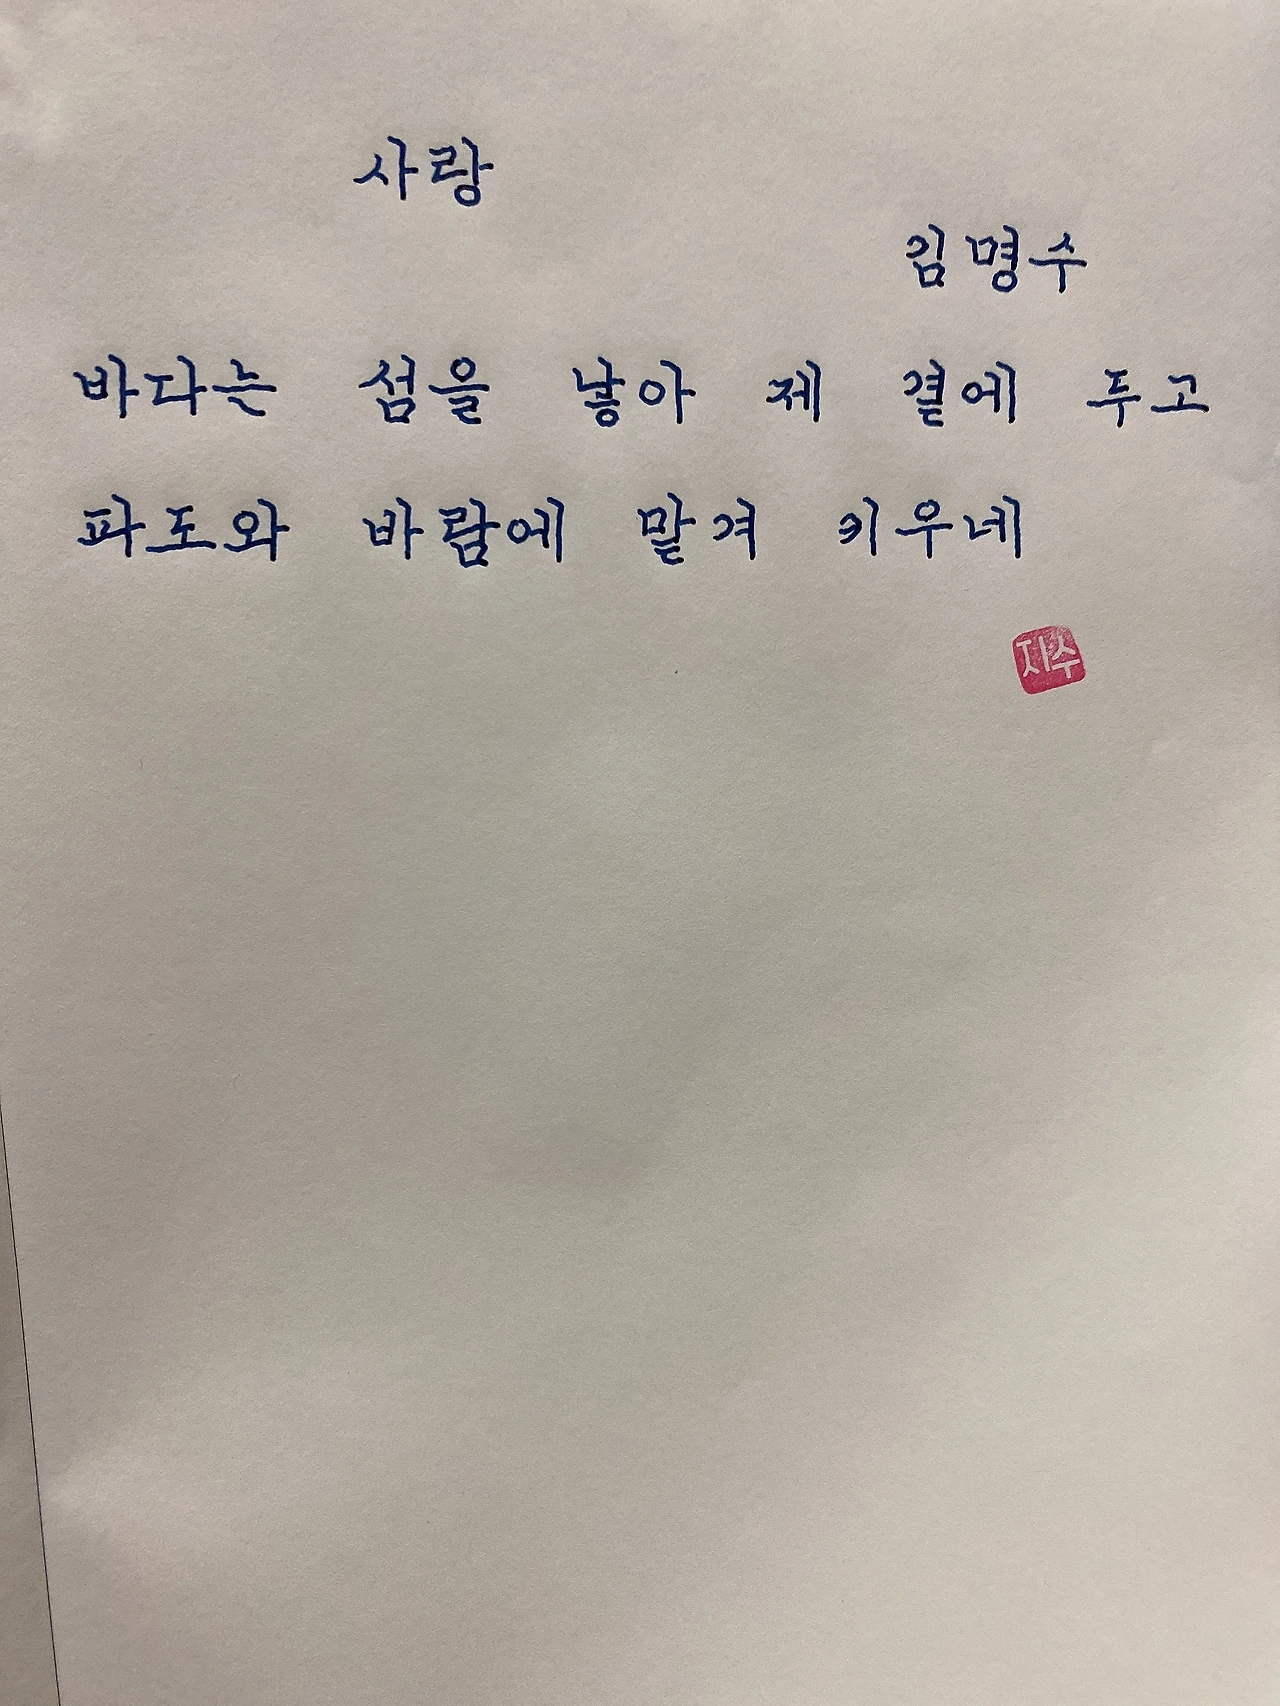 사랑
김명수
바다는 섬을 낳아 제 곁에 두고
파도와 바람에 맡겨 키우네
지수